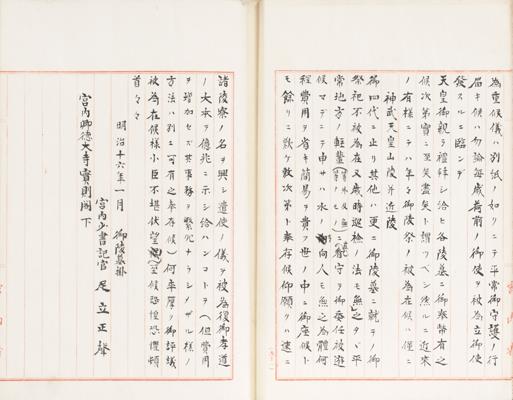 為重候儀ハ別紙ノ如クニテ平常御守護ノ行
届キ候ハ勿論毎歳荷前ノ御使ヲ被為立御使
發スルニ臨ンデ
天皇御親ラ禮拝シ給ヒ各陵墓ニ御奉幣有之
候次第實ニ至矣盡矣ト謂ツベシ然ルニ近來
ノ有樣ニテハ年々御陵祭ノ被為在候ハ僅ニ
神武天皇山陵并近陵
御四代ニ止リ其他ハ更ニ御陵墓ニ就テノ御
祭祀不被為在又歳時巡檢ノ法モ無之タヾ平
常地方ノ軽輩ニ看守ヲ御委任被遊
候マデニテ申サハ氷ノ向人モ無之為體何
程費用ヲ省キ簡易ヲ貴フ世ノ中ニ御座候ト
モ餘リニ歎ケ敷次第ト奉存候仰願クハ速ニ
諸陵寮ノ名ヲ興シ遣使ノ儀ヲ被為復御孝道
ノ大本ヲ億兆ニ示シ給ハンコトヲ(但費用
ヲ增加セズ其事務ヲ繁冗ナラシメザル樣ノ
方法ハ別ニ可有之奉存候)何卒厚ク御評議
被為在候樣小臣不堪伏望之至候恐惶恐懼頓
首々々
明治十六年一月 御陵墓掛
宮内少書記官 足立正聲
宮内卿德大寺實則閣下